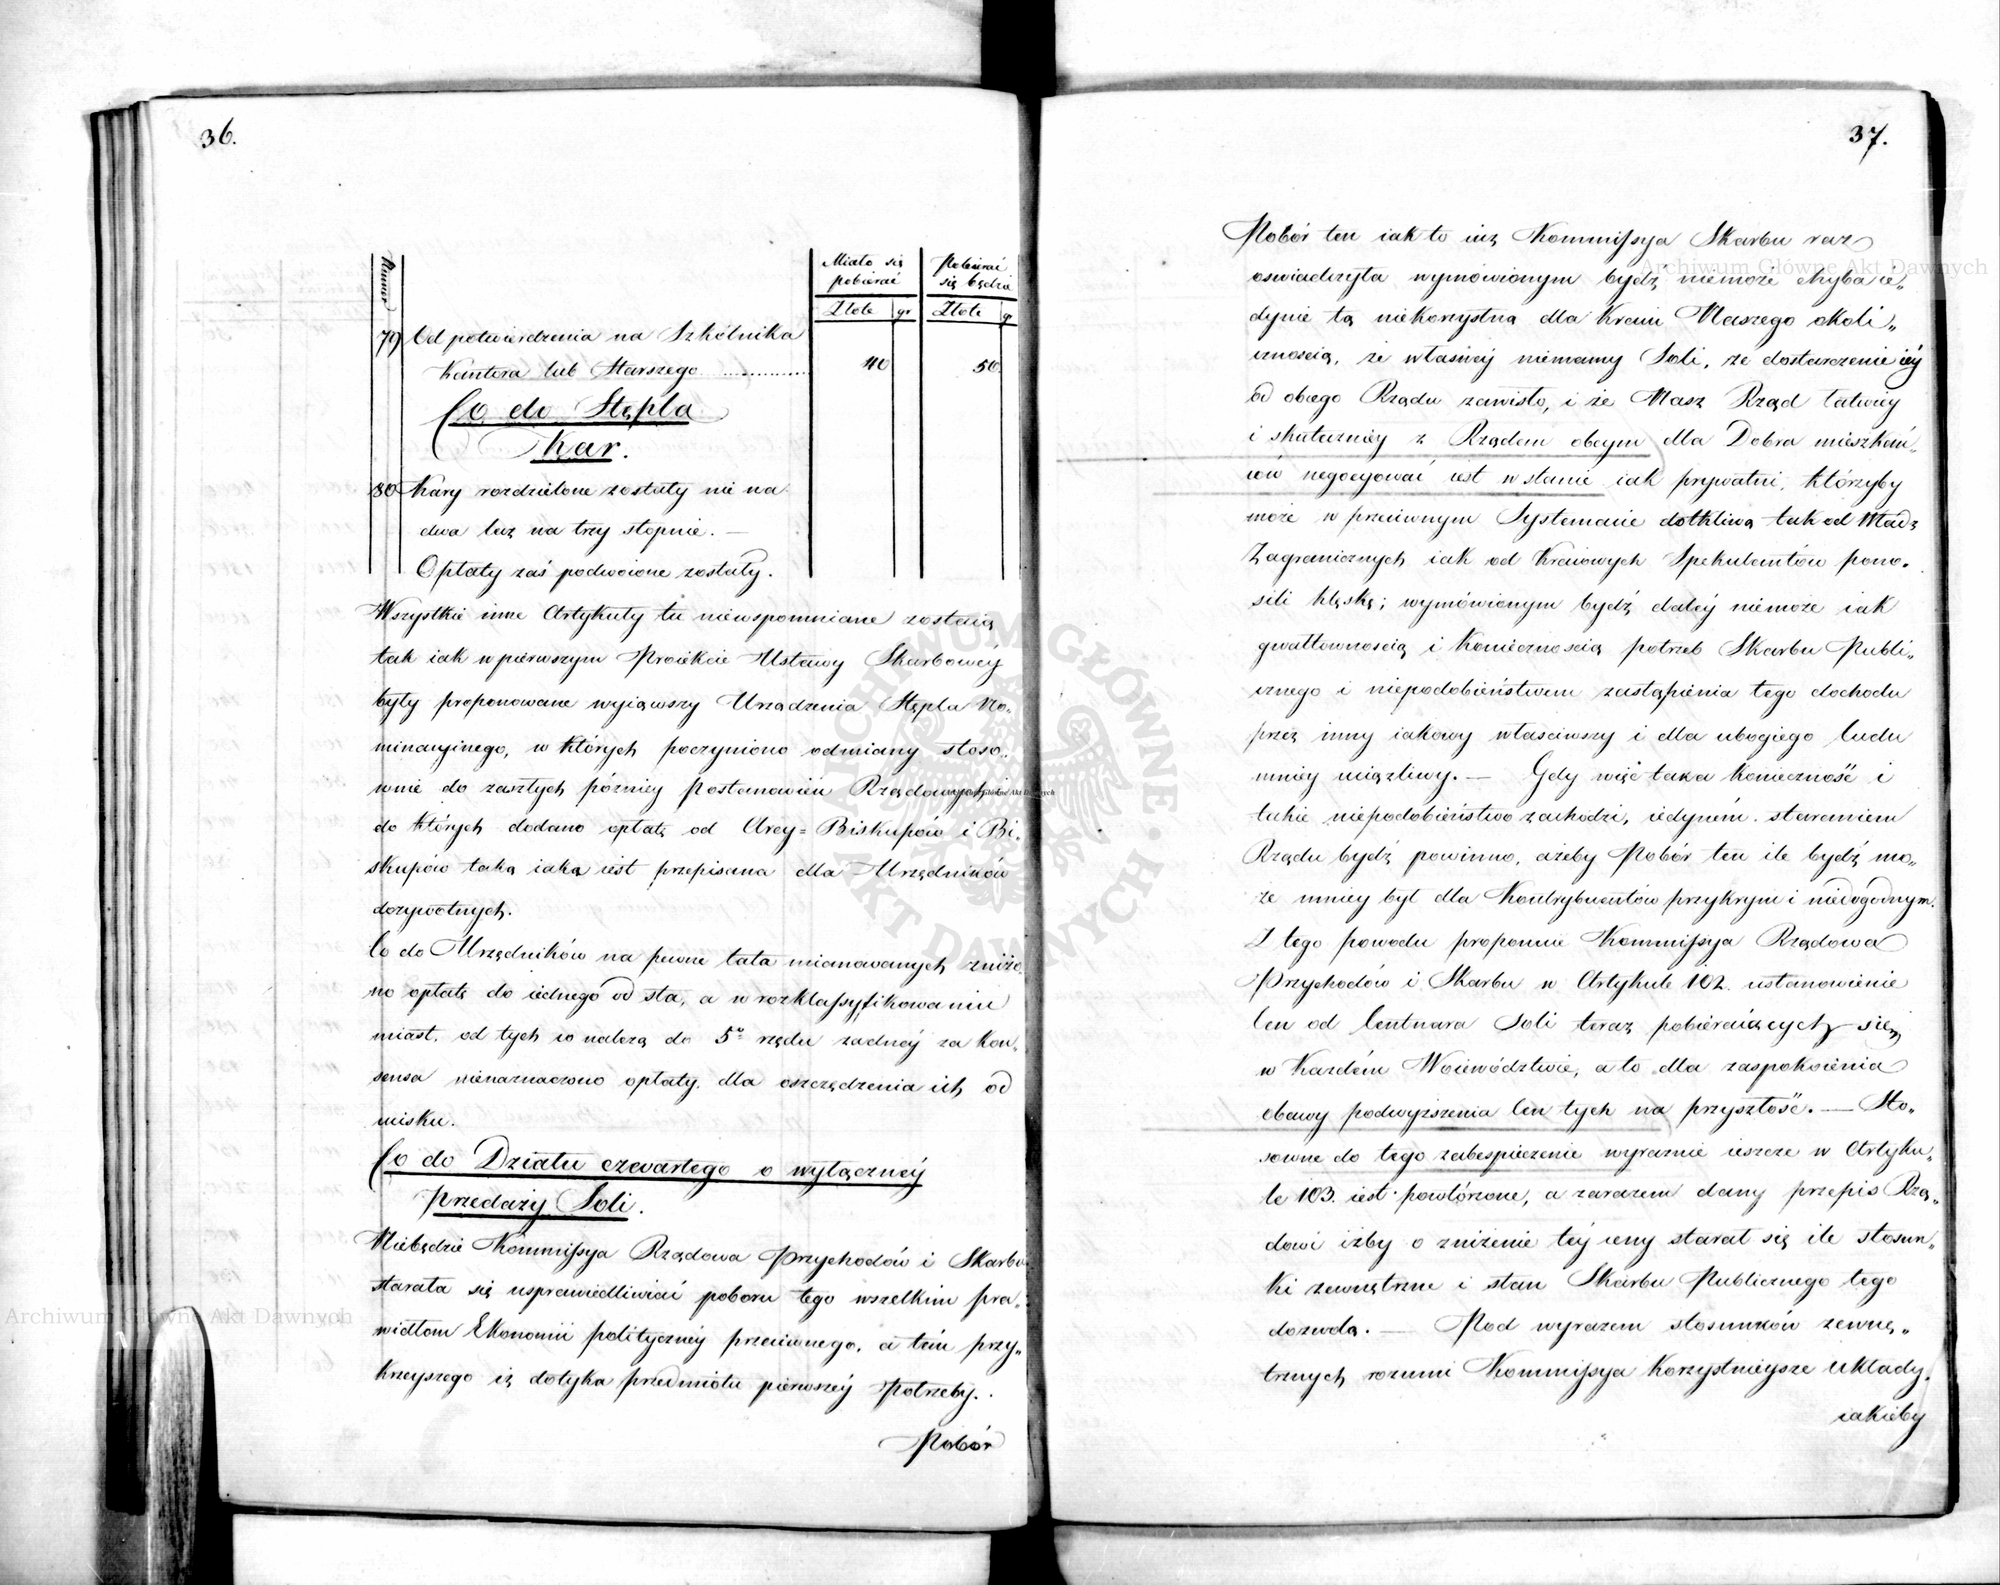 36.
Numer
Miało się pobierać
Pobierać się będzie
Złote gr
Złote gr
79 Od potwierdzenia na Szkólnika
Kantora lub Starszego ............ 40 50
Co do Stępla
Kar.
80 Kary rozdzielone zostały nie na
dwa lecz na trzy stopnie. —
Opłaty zaś podwoione zostały.
Wszystkie inne Artykuły tu niewspomniane zostaią
tak iak w pierwszym Proiekcie Ustawy Skarbowéy
były proponowane wyiąwszy Urządzenia Stępla No„
minacyinego, w których poczyniono odmiany stoso„
wnie do zaszłych późniey Postanowień Rządowych i
do których dodano opłatę od Arcy=Biskupów i Bi„
skupów taką iaka iest przepisana dla Urzędników
dożywotnych.
Co do Urzędników na pewne lata mianowanych zniżo
no opłatę do iednego od sta, a w rozklassyfikowaniu
miast, od tych co należą do 5º rzędu żadnéy za Kon„
sensa nienaznaczono opłaty, dla oszczędzenia ich od
ucisku.
Co do Działu czwartego o wyłącznéy
Przedaży Soli.
Niebędzie Kommissya Rządowa Przychodów i Skarbu
starała się usprawiedliwiać poboru tego wszelkim pra„
widłom Ekonomii politycznéy przeciwnego, a tém przy„
krzeyszego iż dotyka przedmiotu pierwszéy Potrzeby.
Pobór
37.
Pobór ten iak to iuż Kommissya Skarbu raz
oświadczyła wymówionym bydź niemoże chyba ie„
dynie tą niekorzystną dla Kraiu Naszego okoli„
cznością, że własnéy niemamy Soli, że dostarczenie iéy
od obcego Rządu zawisło, i że Nasz Rząd łatwiey
i skuteczniey z Rządem obcym dla Dobra mieszkań„
ców negocyować iest w stanie iak prywatni, którzyby
może w przeciwnym Systemacie dotkliwą tak od Władz
Zagranicznych iak od Kraiowych Spekulantów pono„
sili klęskę; wymówionym bydź daléy niemoże iak
gwałtownością i koniecznością potrzeb Skarbu Publi„
cznego i niepodobieństwem zastąpienia tego dochodu
przez inny iakowy właściwszy i dla ubogiego ludu
mniey uciążliwy. — Gdy więc taka konieczność i
takie niepodobieństwo zachodzi, iedyném staraniem
Rządu bydź powinno, ażeby Pobór ten ile bydź mo„
że mniey był dla Kontrybuentów przykrym i niedogodnym.
Z tego powodu proponuie Kommissya Rządowa
Przychodów i Skarbu w Artykule 102. ustanowienie
Cen od Centnara Soli teraz pobieraiących się
w Każdém Woiewództwie, a to dla zaspokoienia
obawy podwyższenia Cen tych na przyszłość. — Sto„
sowne do tego zabespieczenie wyraźnie ieszcze w Artyku„
le 103. iest powtórzone, a zarazem dany przepis Rzą„
dowi iżby o zniżenie téy ceny starał się ile stosun„
ki zewnętrzne i stan Skarbu Publicznego tego
dozwolą. — Pod wyrazem stosunków zewnę„
trznych rozumi Kommissya Korzystnieysze Układy,
iakieby
Archiwum Główne Akt Dawnych
Archiwum Główne Akt Dawnych
Archiwum Główne Akt Dawnych
ARCHIWUM GŁÓWNE • AKT DAWNYCH •